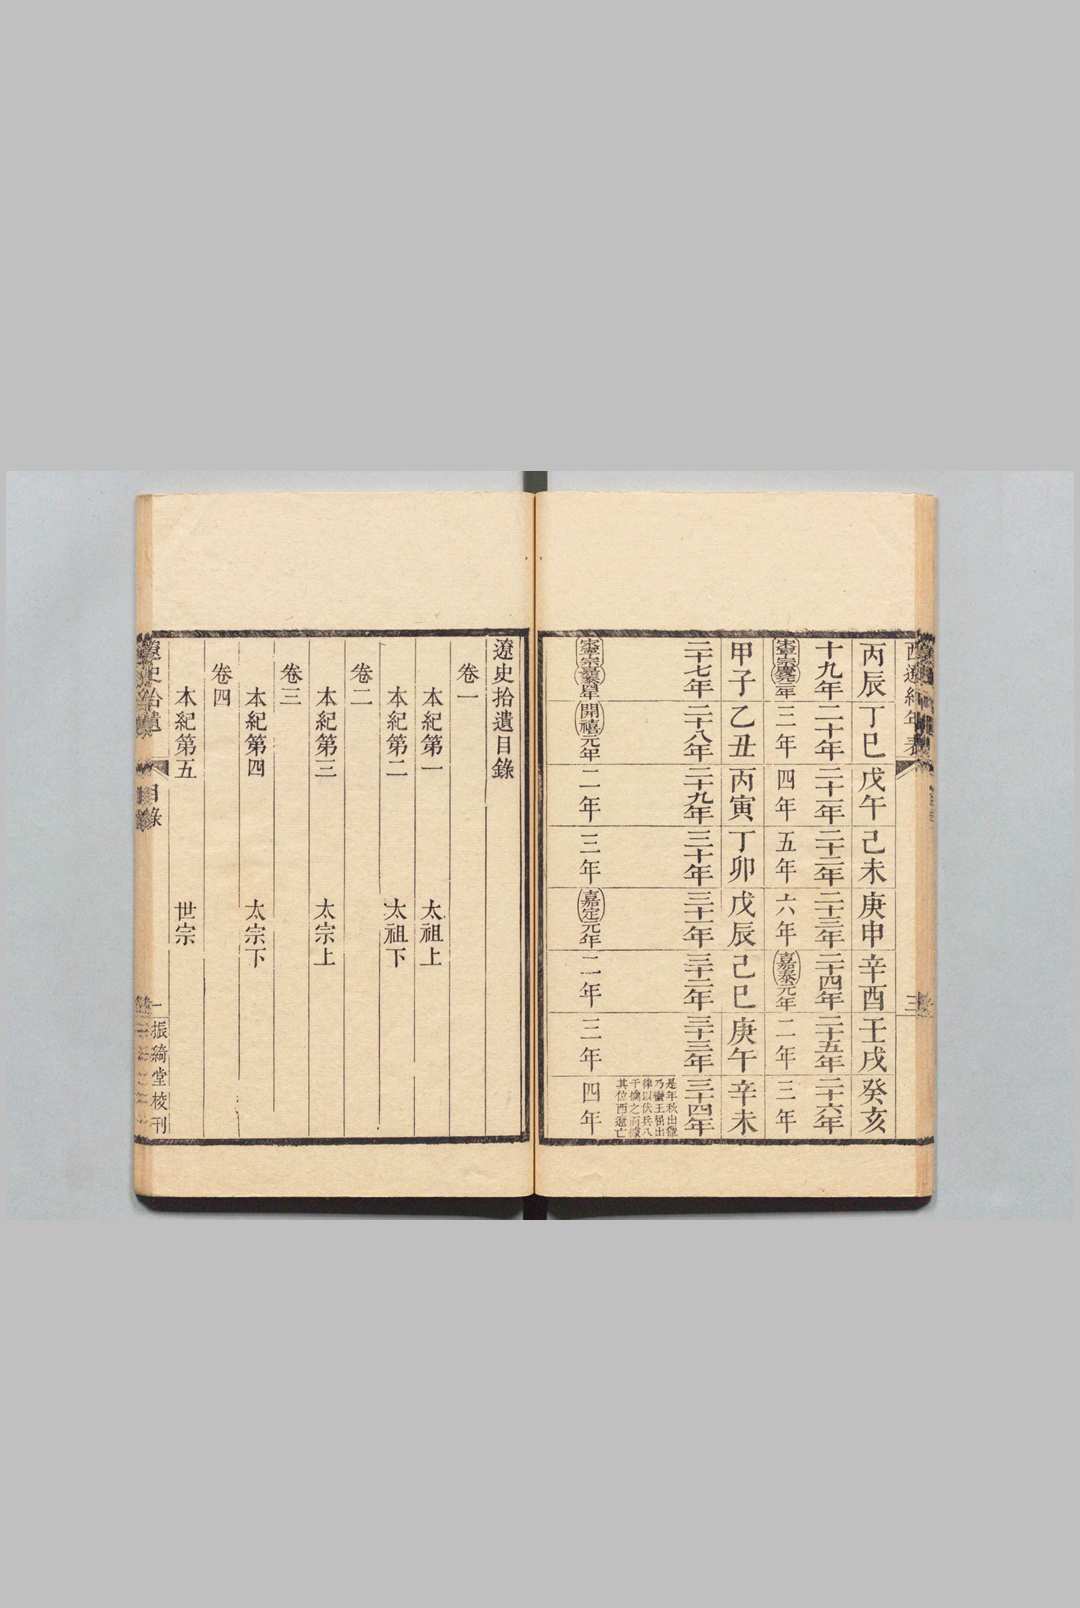 西遼紀年表
三
丙辰 丁巳 戊午 己未 庚申 辛酉 壬戌 癸亥
十九年 二十年 二十一年 二十二年 二十三年 二十四年 二十五年 二十六年
寧宗慶元二年 三年 四年 五年 六年 嘉泰元年 二年 三年
甲子 乙丑 丙寅 丁卯 戊辰 己巳 庚午 辛未
二十七年 二十八年 二十九年 三十年 三十一年 三十二年 三十三年 三十四年
是年秋出獵
乃蠻王屈出
律以伏兵八
千擒之而據
其位西遼亡
開禧元年 二年 三年 嘉定元年 二年 三年 四年
遼史拾遺目錄
卷一
本紀第一 太祖上
本紀第二 太祖下
卷二
本紀第三 太宗上
卷三
本紀第四 太宗下
卷四
本紀第五 世宗
遼史拾遺 目錄 一 振綺堂校刊